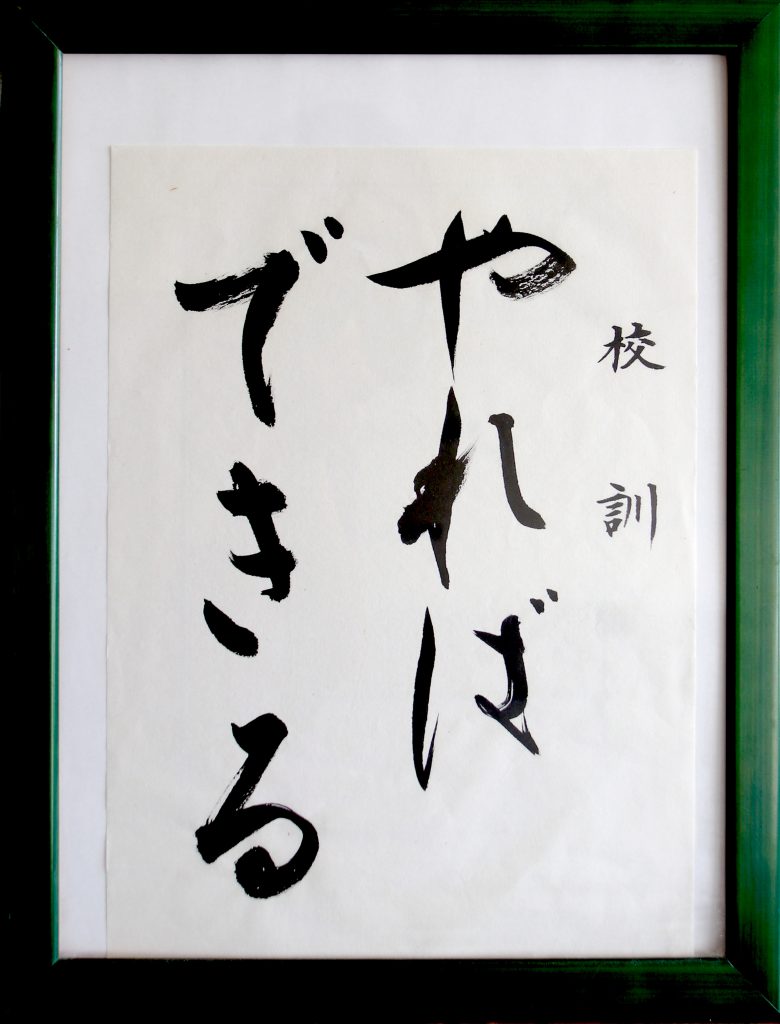 校訓
やれば
できる